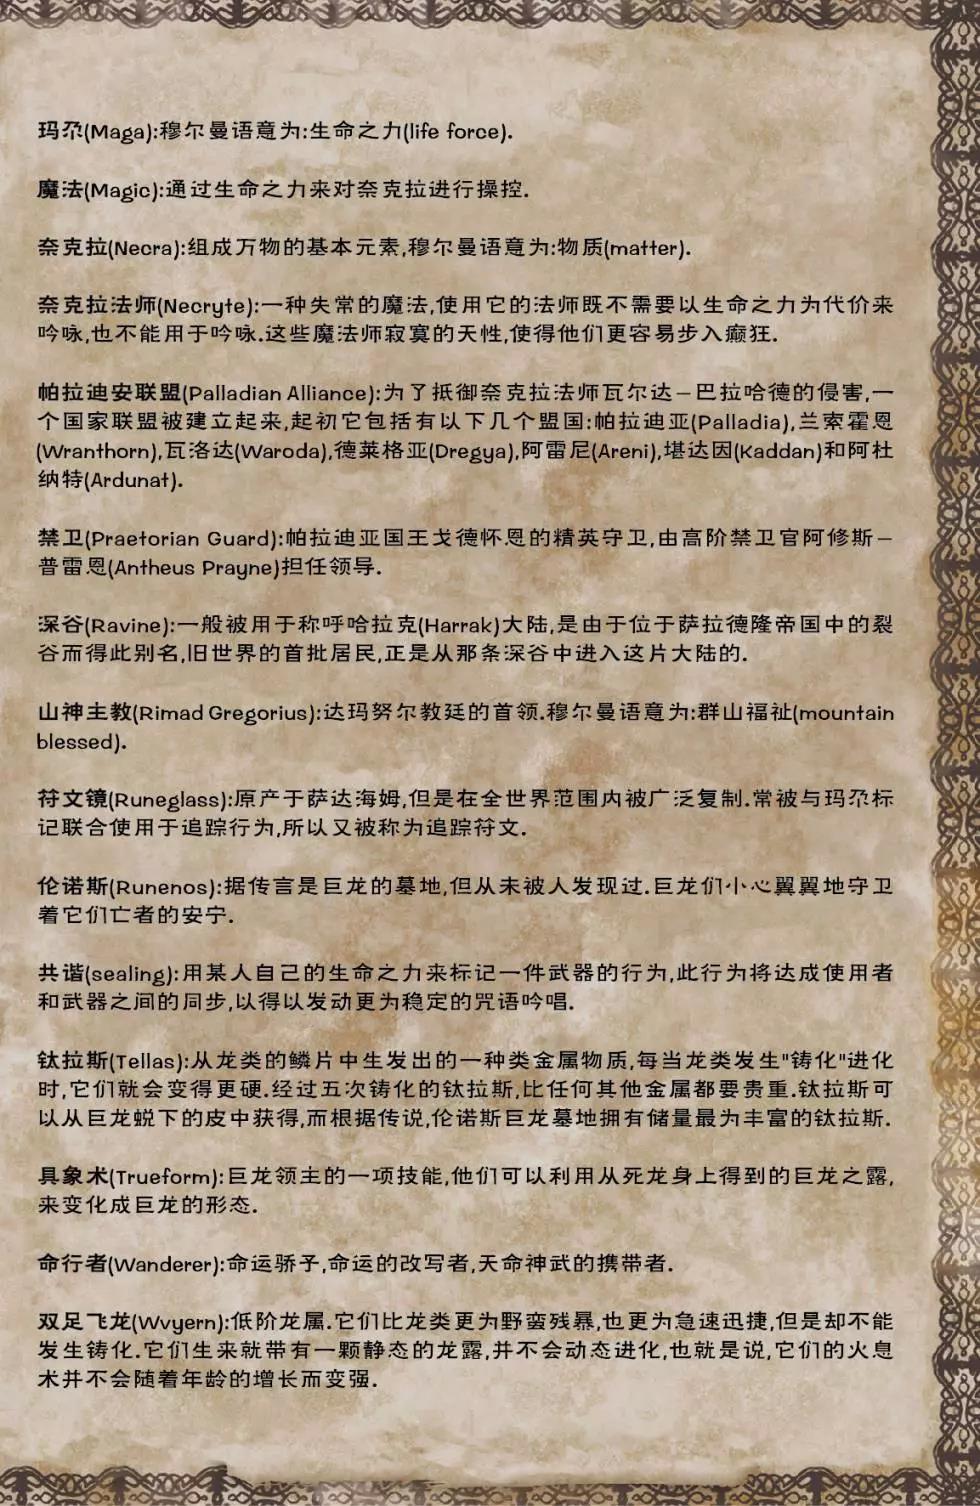 玛尕(Maga):穆尔曼语意为:生命之力(life force).
魔法(Magic):通过生命之力来对奈克拉进行操控.
奈克拉(Necra):组成万物的基本元素,穆尔曼语意为:物质(matter).
奈克拉法师(Necryte):一种失常的魔法,使用它的法师既不需要以生命之力为代价来
吟咏,也不能用于吟咏.这些魔法师寂寞的天性,使得他们更容易步入癫狂.
帕拉迪安联盟(Palladian Alliance):为了抵御奈克拉法师瓦尔达-巴拉哈德的侵害,一
个国家联盟被建立起来,起初它包括有以下几个盟国:帕拉迪亚(Palladia),兰索霍恩
(Wranthorn),瓦洛达(Waroda),德莱格亚(Dregya),阿雷尼(Areni),堪达因(Kaddan)和阿杜
纳特(Ardunat).
禁卫(Praetorian Guard):帕拉迪亚国王戈德怀恩的精英守卫,由高阶禁卫官阿修斯-
普雷恩(Antheus Prayne)担任领导.
深谷(Ravine):一般被用于称呼哈拉克(Harrak)大陆,是由于位于萨拉德隆帝国中的裂
谷而得此别名,旧世界的首批居民,正是从那条深谷中进入这片大陆的.
山神主教(Rimad Gregorius):达玛努尔教廷的首领.穆尔曼语意为:群山福祉(mountain
blessed).
符文镜(Runeglass):原产于萨达海姆,但是在全世界范围内被广泛复制.常被与玛尕标
记联合使用于追踪行为,所以又被称为追踪符文.
伦诺斯(Runenos):据传言是巨龙的墓地,但从未被人发现过.巨龙们小心翼翼地守卫
着它们亡者的安宁.
共谐(sealing):用某人自己的生命之力来标记一件武器的行为,此行为将达成使用者
和武器之间的同步,以得以发动更为稳定的咒语吟唱.
钛拉斯(Tellas):从龙类的鳞片中生发出的一种类金属物质,每当龙类发生"铸化"进化
时,它们就会变得更硬.经过五次铸化的钛拉斯,比任何其他金属都要贵重.钛拉斯可
以从巨龙蜕下的皮中获得,而根据传说,伦诺斯巨龙墓地拥有储量最为丰富的钛拉斯.
具象术(Trueform):巨龙领主的一项技能,他们可以利用从死龙身上得到的巨龙之露,
来变化成巨龙的形态.
命行者(Wanderer):命运骄予,命运的改写者,天命神武的携带者.
双足飞龙(Wvyern):低阶龙属.它们比龙类更为野蛮残暴,也更为急速迅捷,但是却不能
发生铸化.它们生来就带有一颗静态的龙露,并不会动态进化,也就是说,它们的火息
术并不会随着年龄的增长而变强.